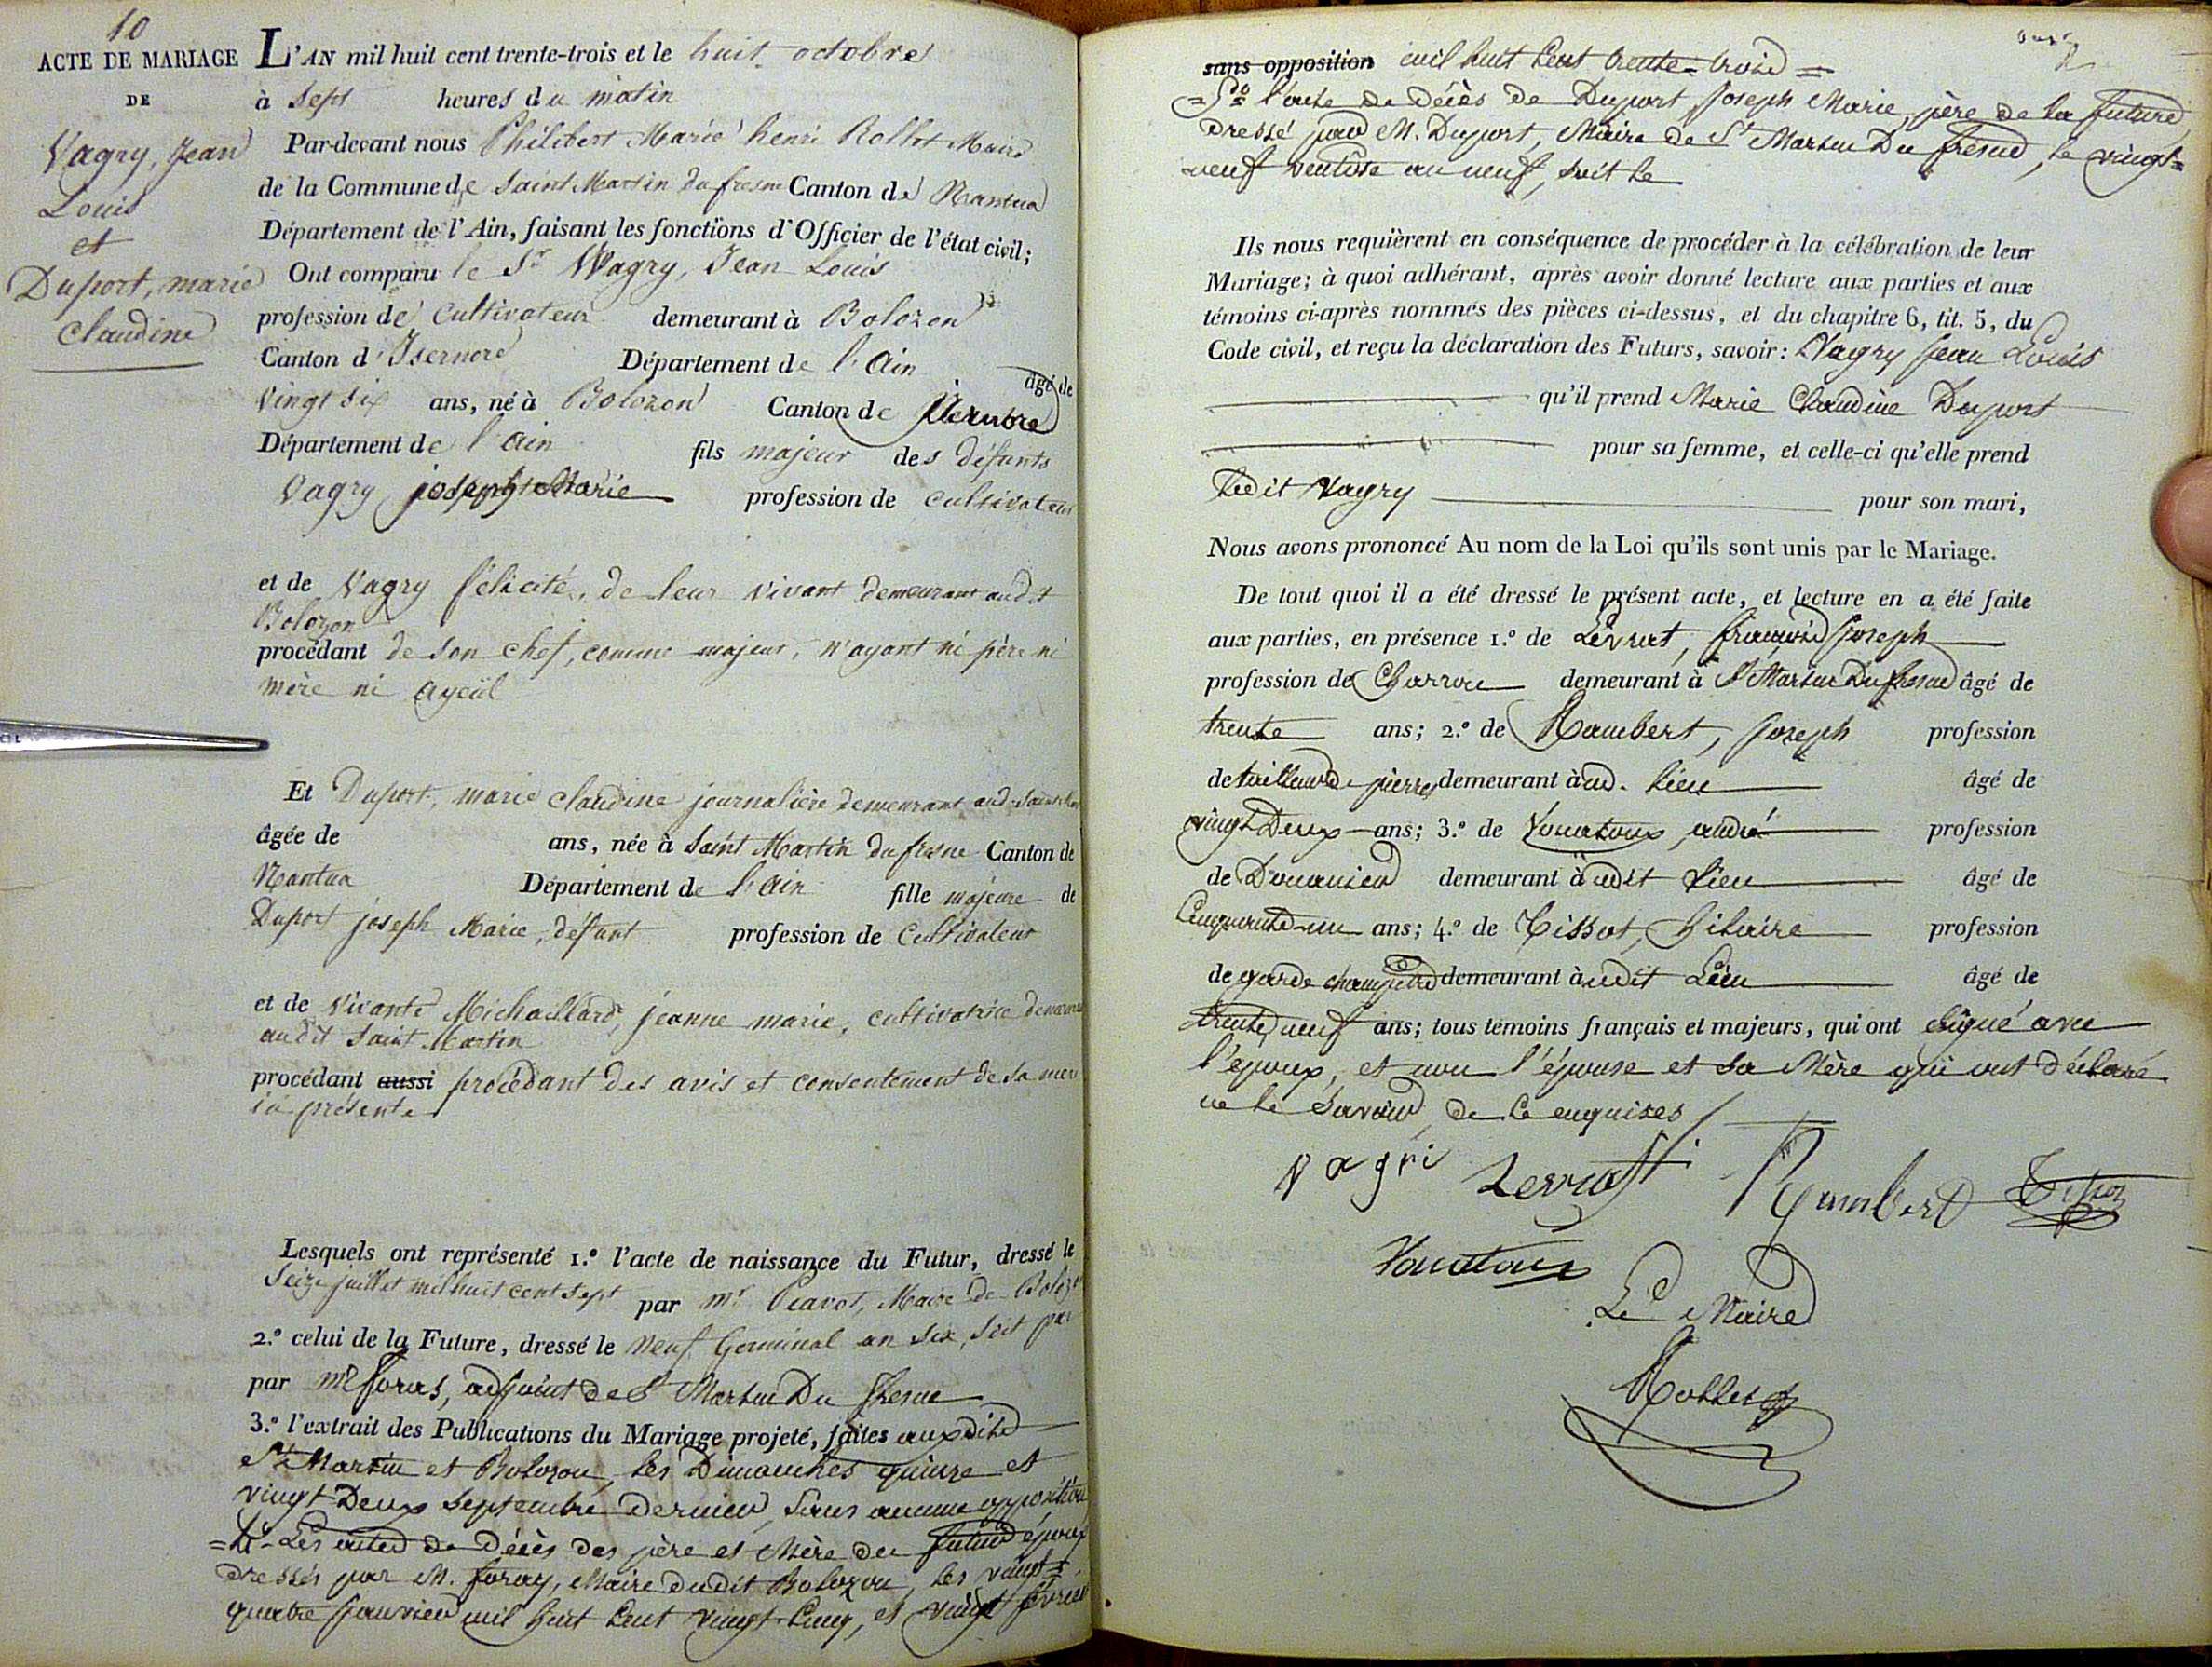 10
ACTE DE MARIAGE
DE
Vagry, Jean
Louis
et
Duport, marie
Claudine
L'AN mil huit cent trente-trois et le huit octobre
à Sept heures du matin
Par-devant nous Philibert Marie henri Rollet Maire
de la Commune de Saint Martin du fresne Canton de Nantua
Département de l'Ain, faisant les fonctions d'Officier de l'état civil;
Ont comparu le Sr Vagry, Jean Louis
profession de Cultivateur demeurant à Bolozon
Canton d'Isernore Département de l'Ain âgé de
Vingt six ans, né à Bolozon Canton de Isernore
Département de l'Ain fils majeur des défunts
Vagry joseph Marie profession de cultivateur
et de Vagry félicité, de leur vivant demeurant audit
Bolozon
procédant de son chef, comme majeur, n'ayant ni père ni
mère ni ayeül
Et Duport, marie claudine journalière demeurant aud. Saint
âgée de ans, née à Saint Martin du fresne Canton de
Nantua Département de l'Ain fille majeure de
Duport joseph Marie, défunt profession de Cultivateur
et de vivante Michaillard, jeanne marie, cultivatrice
audit Saint Martin
procédant aussi procédant des avis et consentement de sa mere
ici présente
Lesquels ont représenté 1.º l'acte de naissance du Futur, dressé le
Seize juillet mil huit cent sept par mr Maire de Bolozon
2.º celui de la Future, dressé le neuf Germinal an six, soit par
par mr foras, adjoint de St Martin Du fresne
3.º l'extrait des Publications du Mariage projeté, faites auxdits
St Martin et Bolozon, les Dimanches quinze et
vingt Deux septembre Dernier, sans aucune opposition
=4º= Les actes de décès des père et Mère du futur époux
dressés par M. foray, Maire dudit Bolozon, les vingt=
quatre janvier mil huit Cent vingt-Cinq, et vingt février
sans opposition mil huit Cent trente=trois=
=5º= l'acte de décès de Duport Joseph Marie, père de la future
dressé par M. Duport, Maire de St Martin Du fresne, le vingt=
neuf ventôse an neuf, soit le
Ils nous requièrent en conséquence de procéder à la célébration de leur
Mariage; à quoi adhérant, après avoir donné lecture aux parties et aux
témoins ci-après nommés des pièces ci-dessus, et du chapitre 6, tit. 5, du
Code civil, et reçu la déclaration des Futurs, savoir: Vagry Jean Louis
qu'il prend Marie Claudine Duport
pour sa femme, et celle-ci qu'elle prend
Ledit Vagry pour son mari,
Nous avons prononcé Au nom de la Loi qu'ils sont unis par le Mariage.
De tout quoi il a été dressé le présent acte, et lecture en a été faite
aux parties, en présence 1.º de Levrat, françois Joseph
profession de Charron demeurant à St Martin Du fresne âgé de
trente ans; 2.º de Rambert, Joseph profession
de tailleur de pierres demeurant à ud. lieu âgé de
vingt Deux ans; 3.º de andré profession
de Douanier demeurant à udit lieu âgé de
Cinquante-un ans; 4.º de Tissot, hilaire profession
de garde champêtre demeurant à udit Lieu âgé de
trente neuf ans; tous témoins français et majeurs, qui ont Signé avec
l'époux, et non l'épouse et sa Mère qui ont déclaré
ne le savoir de ce enquises
vagri Levrat Rambert Tissot
Le Maire
Rollet